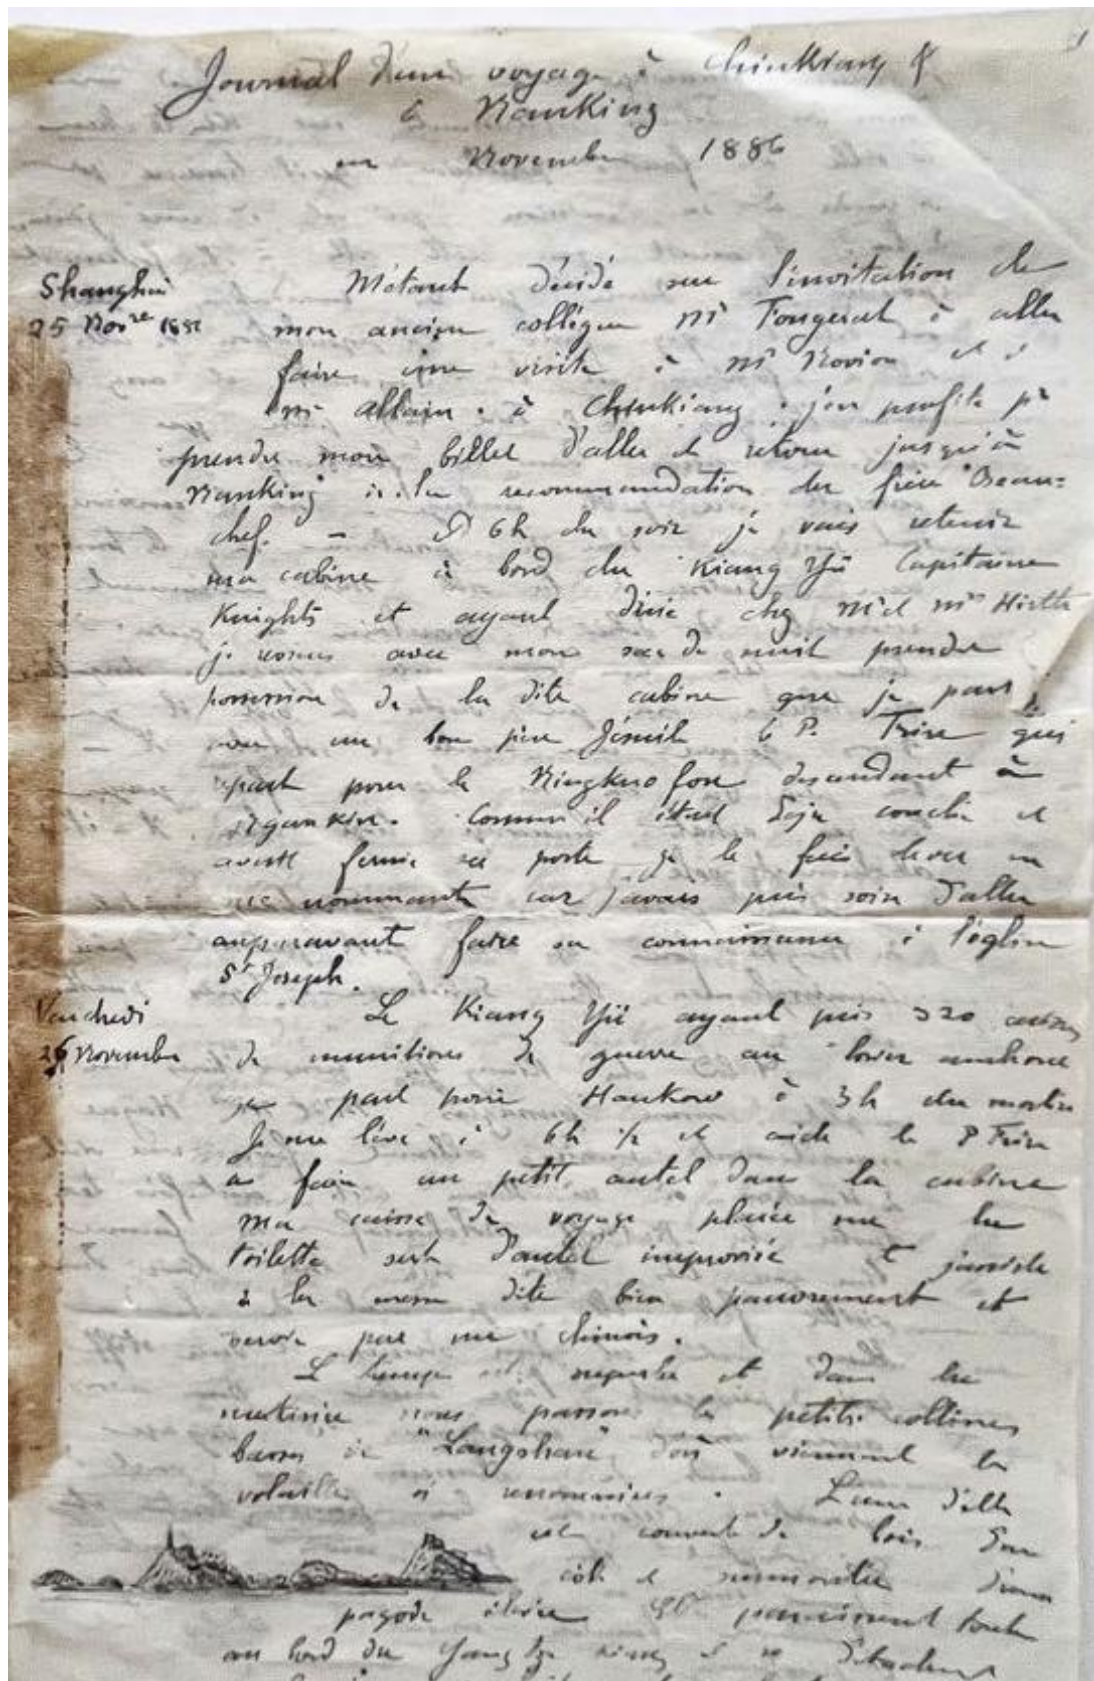 Journal d'un voyage à Chinkiang &
à Nanking
en Novembre 1886
Shanghai
25 Nov.re 1886
M'étant décidé sur l'invitation de
mon ancien collègue Mr Fougerat à aller
faire une visite à Mr Novion et à
Mr Allain à Chinkiang j'en profite pr
prendre mon billet d'aller et retour jusqu'à
Nanking à la recommandation du frère Beau=
chef. — à 6h du soir je vais retenir
ma cabine à bord du Kiang Yü Capitaine
Knights et ayant diné chez Mr et Me Hirth
je reviens avec mon sac de nuit prendre
possession de la dite cabine que je
avec un bon père Jésuite le P. qui
part pour le Ningkuo fou descendant à
Comme il était déja couché et
avait fermé sa porte je le fais lever en
me nommant car j'avais pris soin d'aller
auparavant faire sa connaissance à l'église
St Joseph.
Vendredi
26 Novembre
Le Kiang Yü ayant pris 320 caisses
de munitions de guerre au lower anchorage
part pour Hankow à 3h du matin
Je me lève à 6h ½ et aide le P
à faire un petit autel dans la cabine
ma caisse de voyage placée sur la
toilette sert d'autel improvisé et j'assiste
à la messe dite bien pauvrement et
servie par un chinois.
Le temps est superbe et dans la
matinée nous passons les petites collines
basses de "Langshan" d'où viennent les
volailles si renommées. L'une d'elle
est couverte de bois d'un
côté et surmontée d'une
pagode
au bord du Yang tze Kiang et se détachent